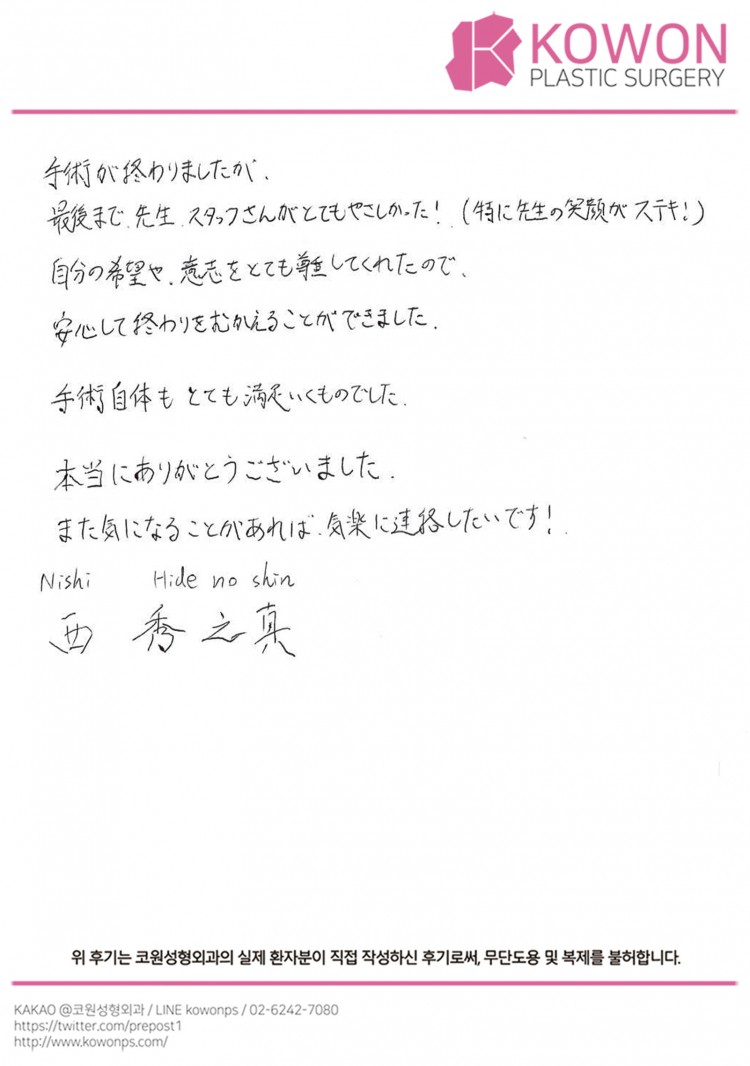 KOWON
PLASTIC SURGERY
手術が終わりましたが、
最後まで、先生、スタッフさんがとてもやさしかった！(特に先生の笑顔がステキ！)
自分の希望や、意志をとても尊重してくれたので、
安心して終わりをむかえることができました.
手術自体も とても満足いくものでした.
本当にありがとうございました.
また気になることがあれば、気楽に連絡したいです！
Nishi Hide no shin
西 秀之真
위 후기는 코원성형외과의 실제 환자분이 직접 작성하신 후기로써, 무단도용 및 복제를 불허합니다.
KAKAO @코원성형외과 / LINE kowonps / 02-6242-7080
https://twitter.com/prepost1
http://www.kowonps.com/